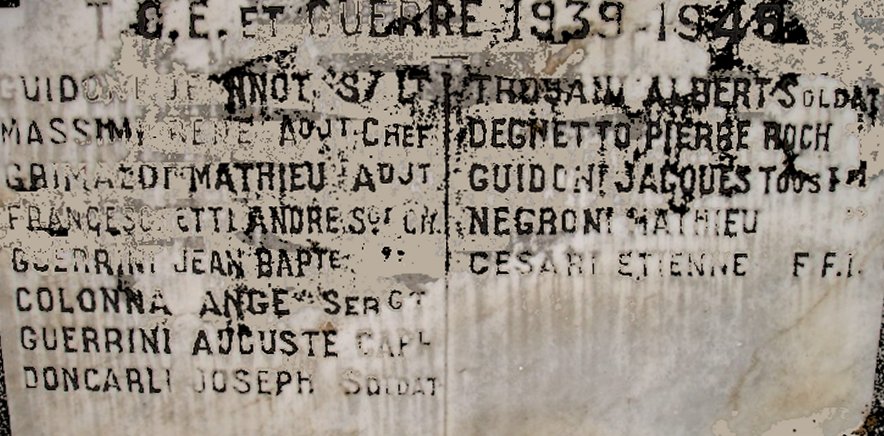 T.O.E. ET GUERRE 1939-1945
GUIDONI JEANNOT S/LT
MASSIMI RENE ADJT CHEF
GRIMALDI MATHIEU ADJT
FRANCESCHETTI ANDRE SGT CH.
GUERRINI JEAN BAPTE "
COLONNA ANGE SERGT
GUERRINI AUGUSTE CAPL
DONCARLI JOSEPH SOLDAT
ALBERT SOLDAT
DEGNETTO PIERRE ROCH
GUIDONI JACQUES TOUST "
NEGRONI MATHIEU "
CESARI ETIENNE F.F.I.